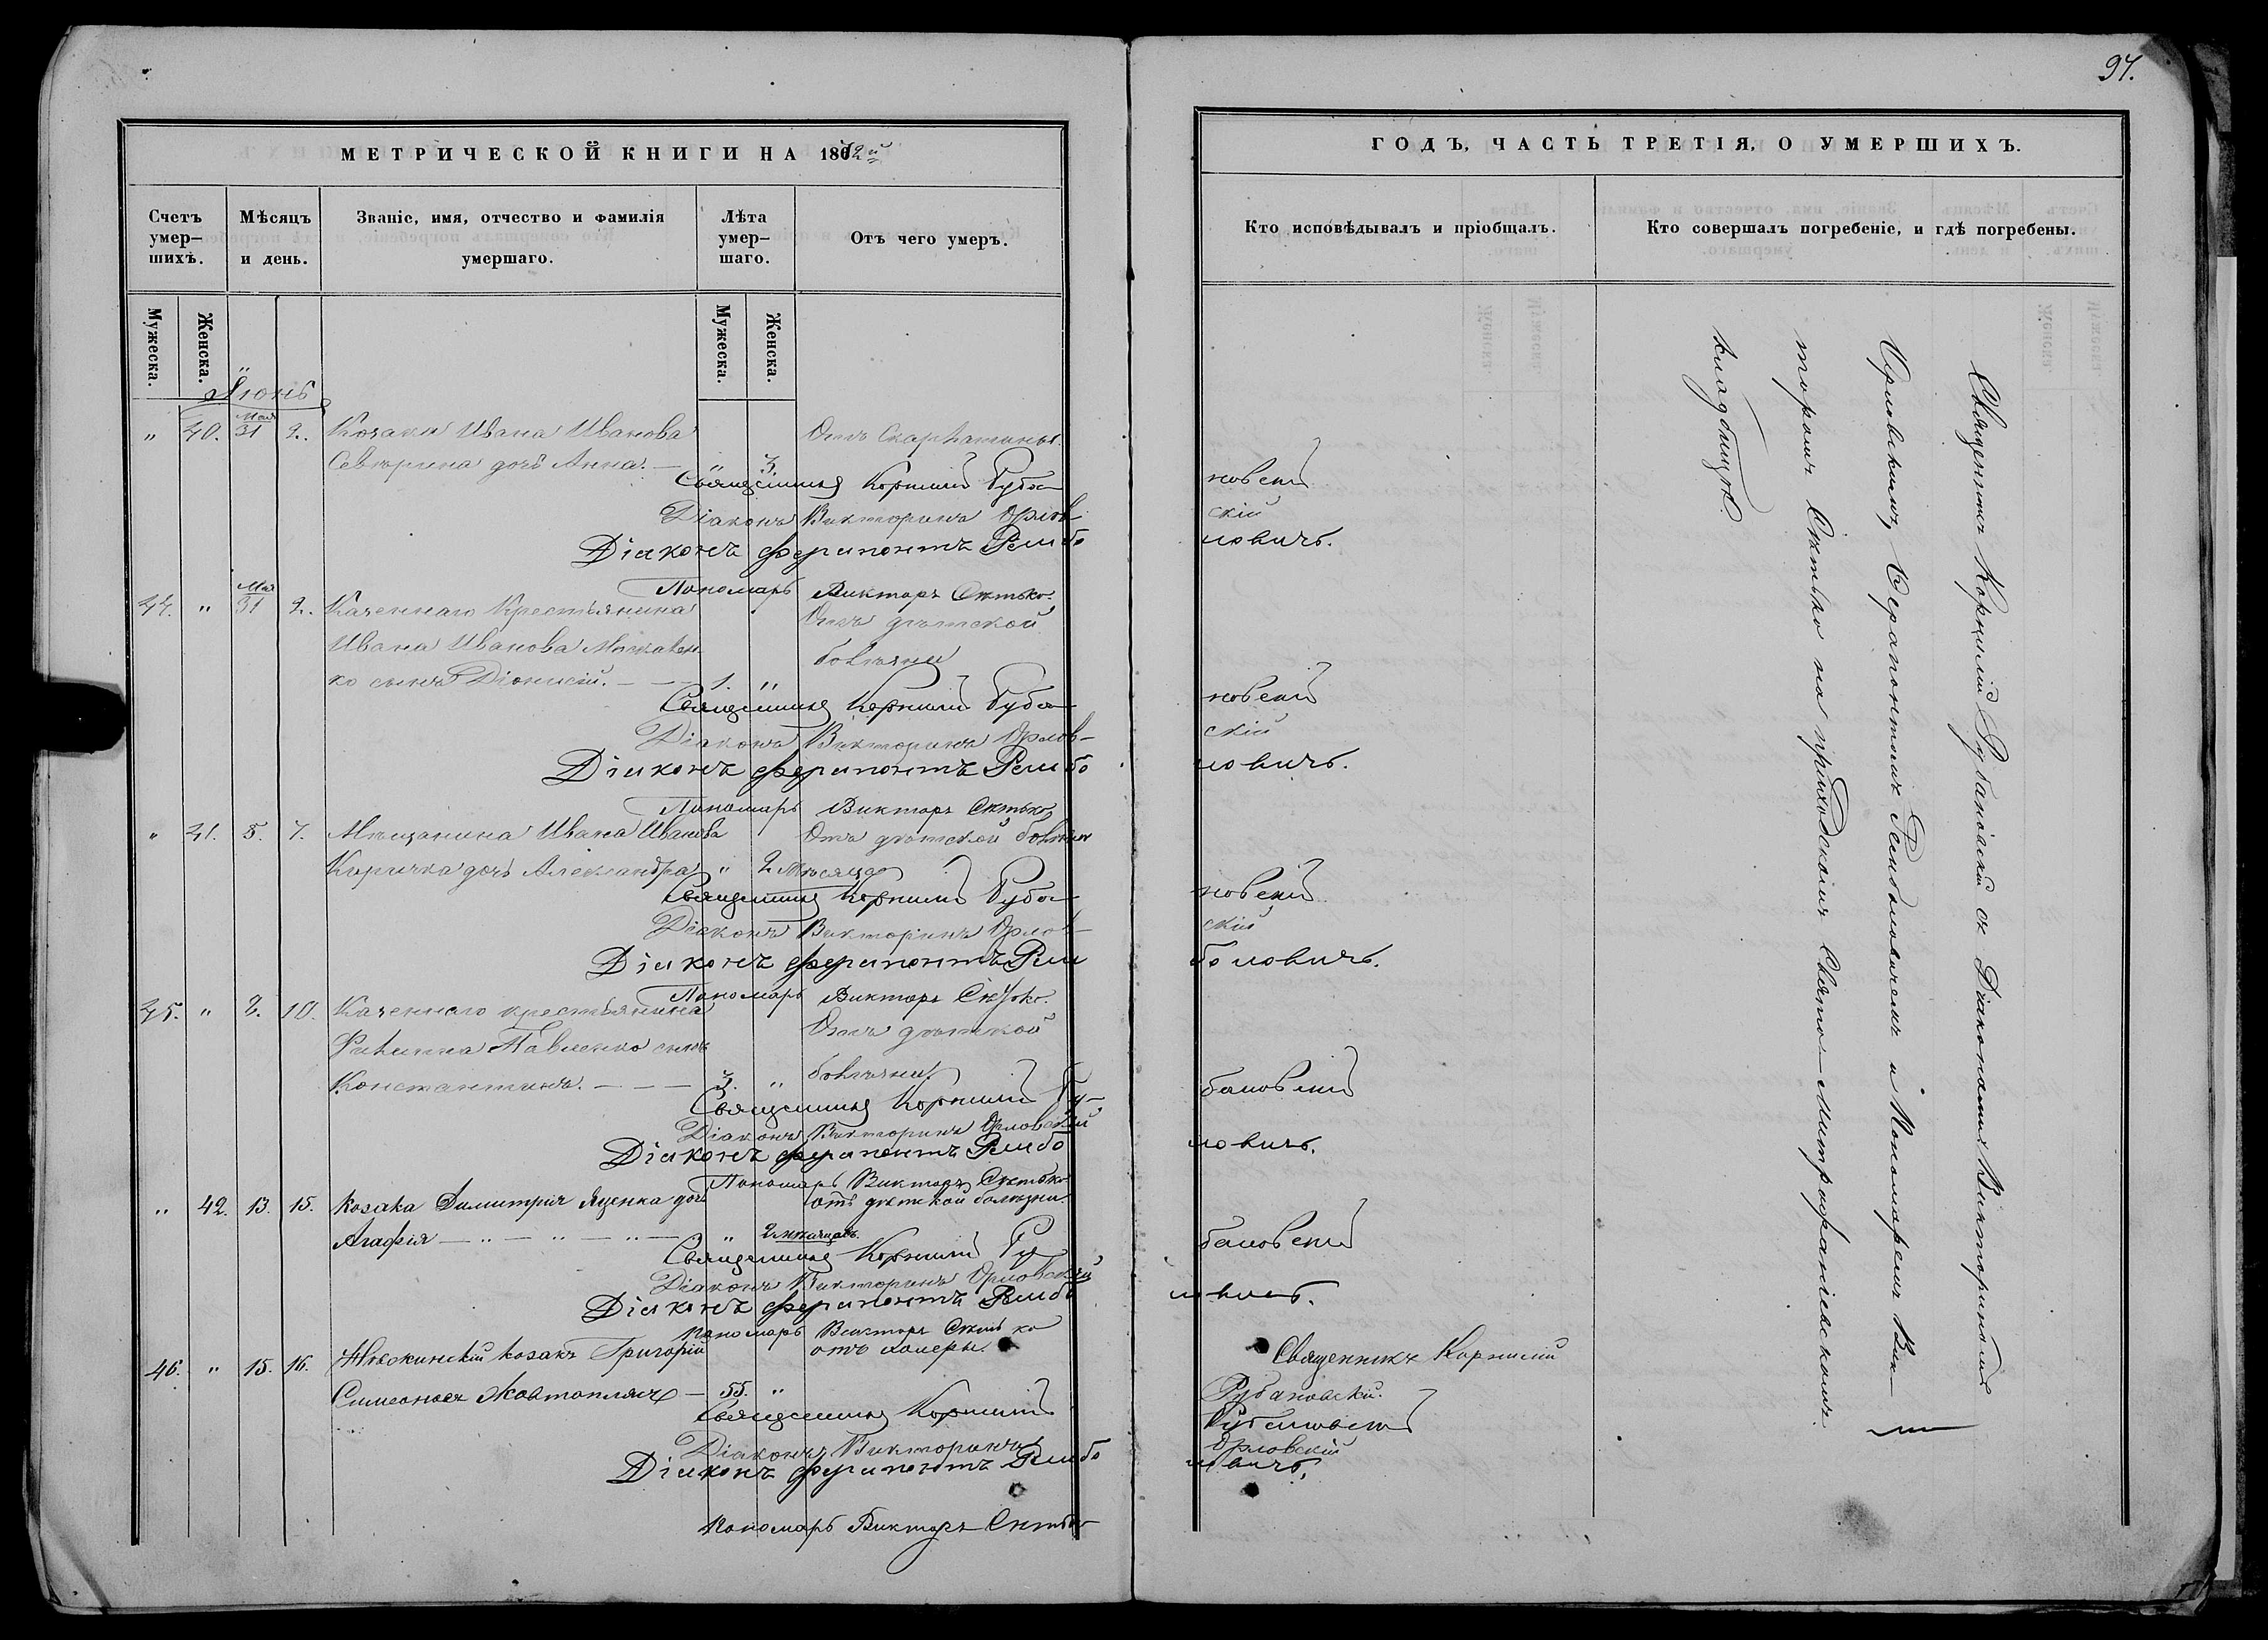 97.
МЕТРИЧЕСКОЙ КНИГИ НА 1872й
ГОДЪ, ЧАСТЬ ТРЕТІЯ, О УМЕРШИХЪ.
Счетъ умер-шихъ.
Мѣсяцъ и день.
Званіе, имя, отчество и фамилія умершаго.
Лѣта умер-шаго.
Отъ чего умеръ.
Кто исповѣдывалъ и пріобщалъ.
Кто совершалъ погребеніе, и гдѣ погребены.
Мужеска.
Женска.
Мужеска.
Женска.
Іюнь
„ 40. Мая 31 2. Козака Ивана Иванова Отъ Скарлатины
дочь Анна. — „ 3.
Священникъ Корнилій Рубановскій
Діаконъ Викторинъ Орловскій
Діаконъ Ферапонтъ Рембовичъ.
Пономарь Викторъ Сѣтько.
44. „ Мая 31 2. Казеннаго Крестьянина Отъ дѣтской
Ивана Иванова болѣзни
ко сынъ Діонисій. — — 1. „
Священникъ Корнилій Рубановскій
Діаконъ Викторинъ Орловскій
Діаконъ Ферапонтъ
Пономарь Викторъ Сѣтько
„ 41. 5. 7. Мѣщанина Ивана Иванова Отъ дѣтской болѣзни
дочь Александра „ 2 мѣсяцо
Священникъ Корнилій Рубановскій
Діаконъ Викторинъ Орловскій
Діаконъ Ферапонтъ
Пономарь Викторъ Сѣтько.
45. „ 8. 10. Казеннаго крестьянина Отъ дѣтской
Филиппа Павленко сынъ
Константинъ. — — — 3. „ болѣзни
Священникъ Корнилій Рубановскій
Діаконъ Викторинъ Орловскій
Діаконъ Ферапонтъ
Пономарь Викторъ Сѣтько
„ 42. 13. 15. Козака Димитрія Яценка дочь отъ дѣтской болѣзни.
Агафія — „ — „ — „ — „ 2 мѣсяцовъ.
Священникъ Корнилій Рубановскій
Діаконъ Викторинъ Орловскій
Діаконъ Ферапонтъ
Пономарь Викторъ Сѣтько
46. „ 15. 16. козакъ Григорій отъ холеры. Священникъ Корнилій
Симеоновъ — 55. „ Рубановскій.
Священникъ Корнилій Рубановскій
Діаконъ Викторинъ Орловскій
Діаконъ Ферапонтъ
Пономарь Викторъ Сѣтько
Священникъ Корнилій Рубановскій съ Діаконами Викториномъ
Орловскимъ, Ферапонтомъ и Пономаремъ Вик-
торомъ Сѣтько на приходскомъ Свято-Митрофаніевскомъ
кладбищѣ.